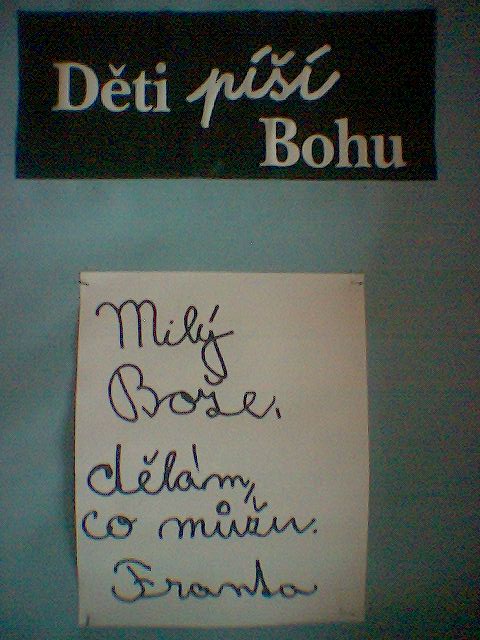 Děti píší
Bohu
Milý
Bože,
dělám,
co můžu.
Franta